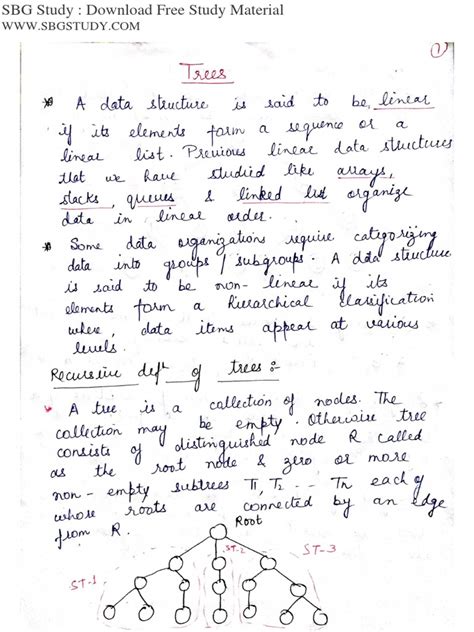 SBG Study : Download Free Study Material
WWW.SBGSTUDY.COM
1
Trees
A data structure is said to be, linear
if its elements form a sequence or a
linear list. Previous linear data structures
that we have studied like arrays,
stacks, queues & linked list organize
data in linear order.
Some data organizations require categorizing
data into groups / subgroups. A data structure
is said to be non-linear if its
elements form a hierarchical classification
where, data items appear at various
levels.
Recursive defⁿ of trees :-
A tree is a collection of nodes. The
collection may be empty. Otherwise tree
consists of distinguished node R called
as the root node & zero or more
non-empty subtrees T1, T2 --- Tn each of
whose roots are connected by an edge
from R.
Root
ST-1
ST-2
ST-3